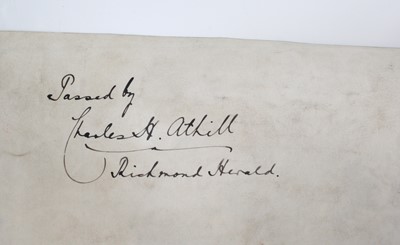 Passed by
Charles H. Athill
Richmond Herald.